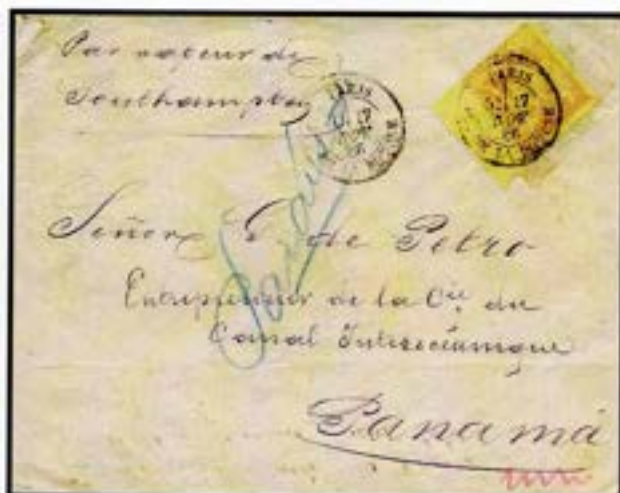 Par vapeur de
Southampton
PARIS
17
PARIS
17
Señor G. de Petro
Entrepreneur de la Cie du
Canal Interocéanique
Panamá